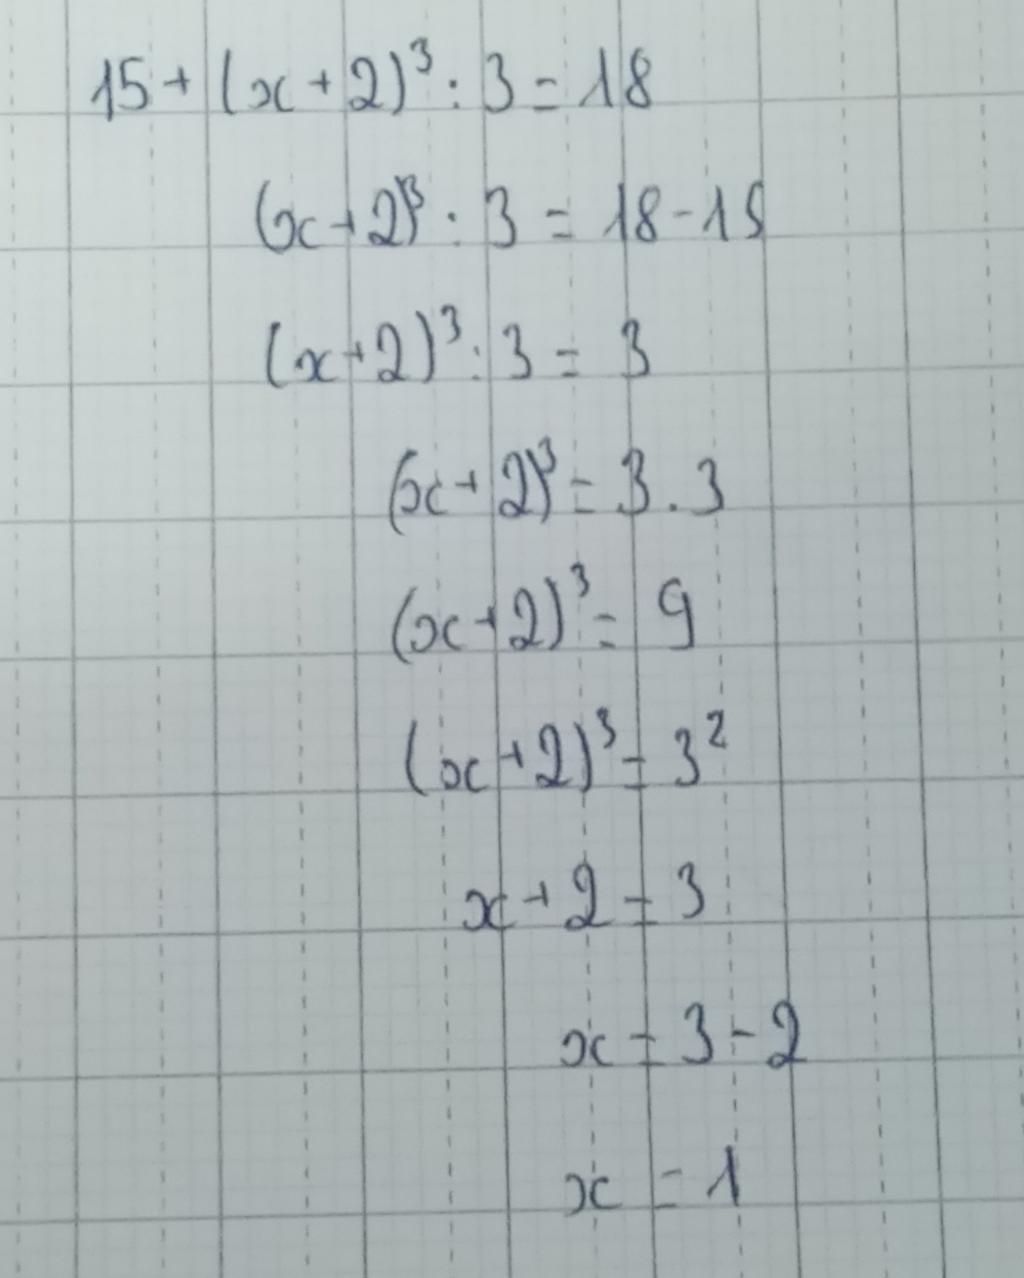 15 + (x + 2)³ : 3 = 18
(x + 2)³ : 3 = 18 - 15
(x + 2)³ : 3 = 3
(x + 2)³ = 3 . 3
(x + 2)³ = 9
(x + 2)³ = 3²
x + 2 = 3
x = 3 - 2
x = 1